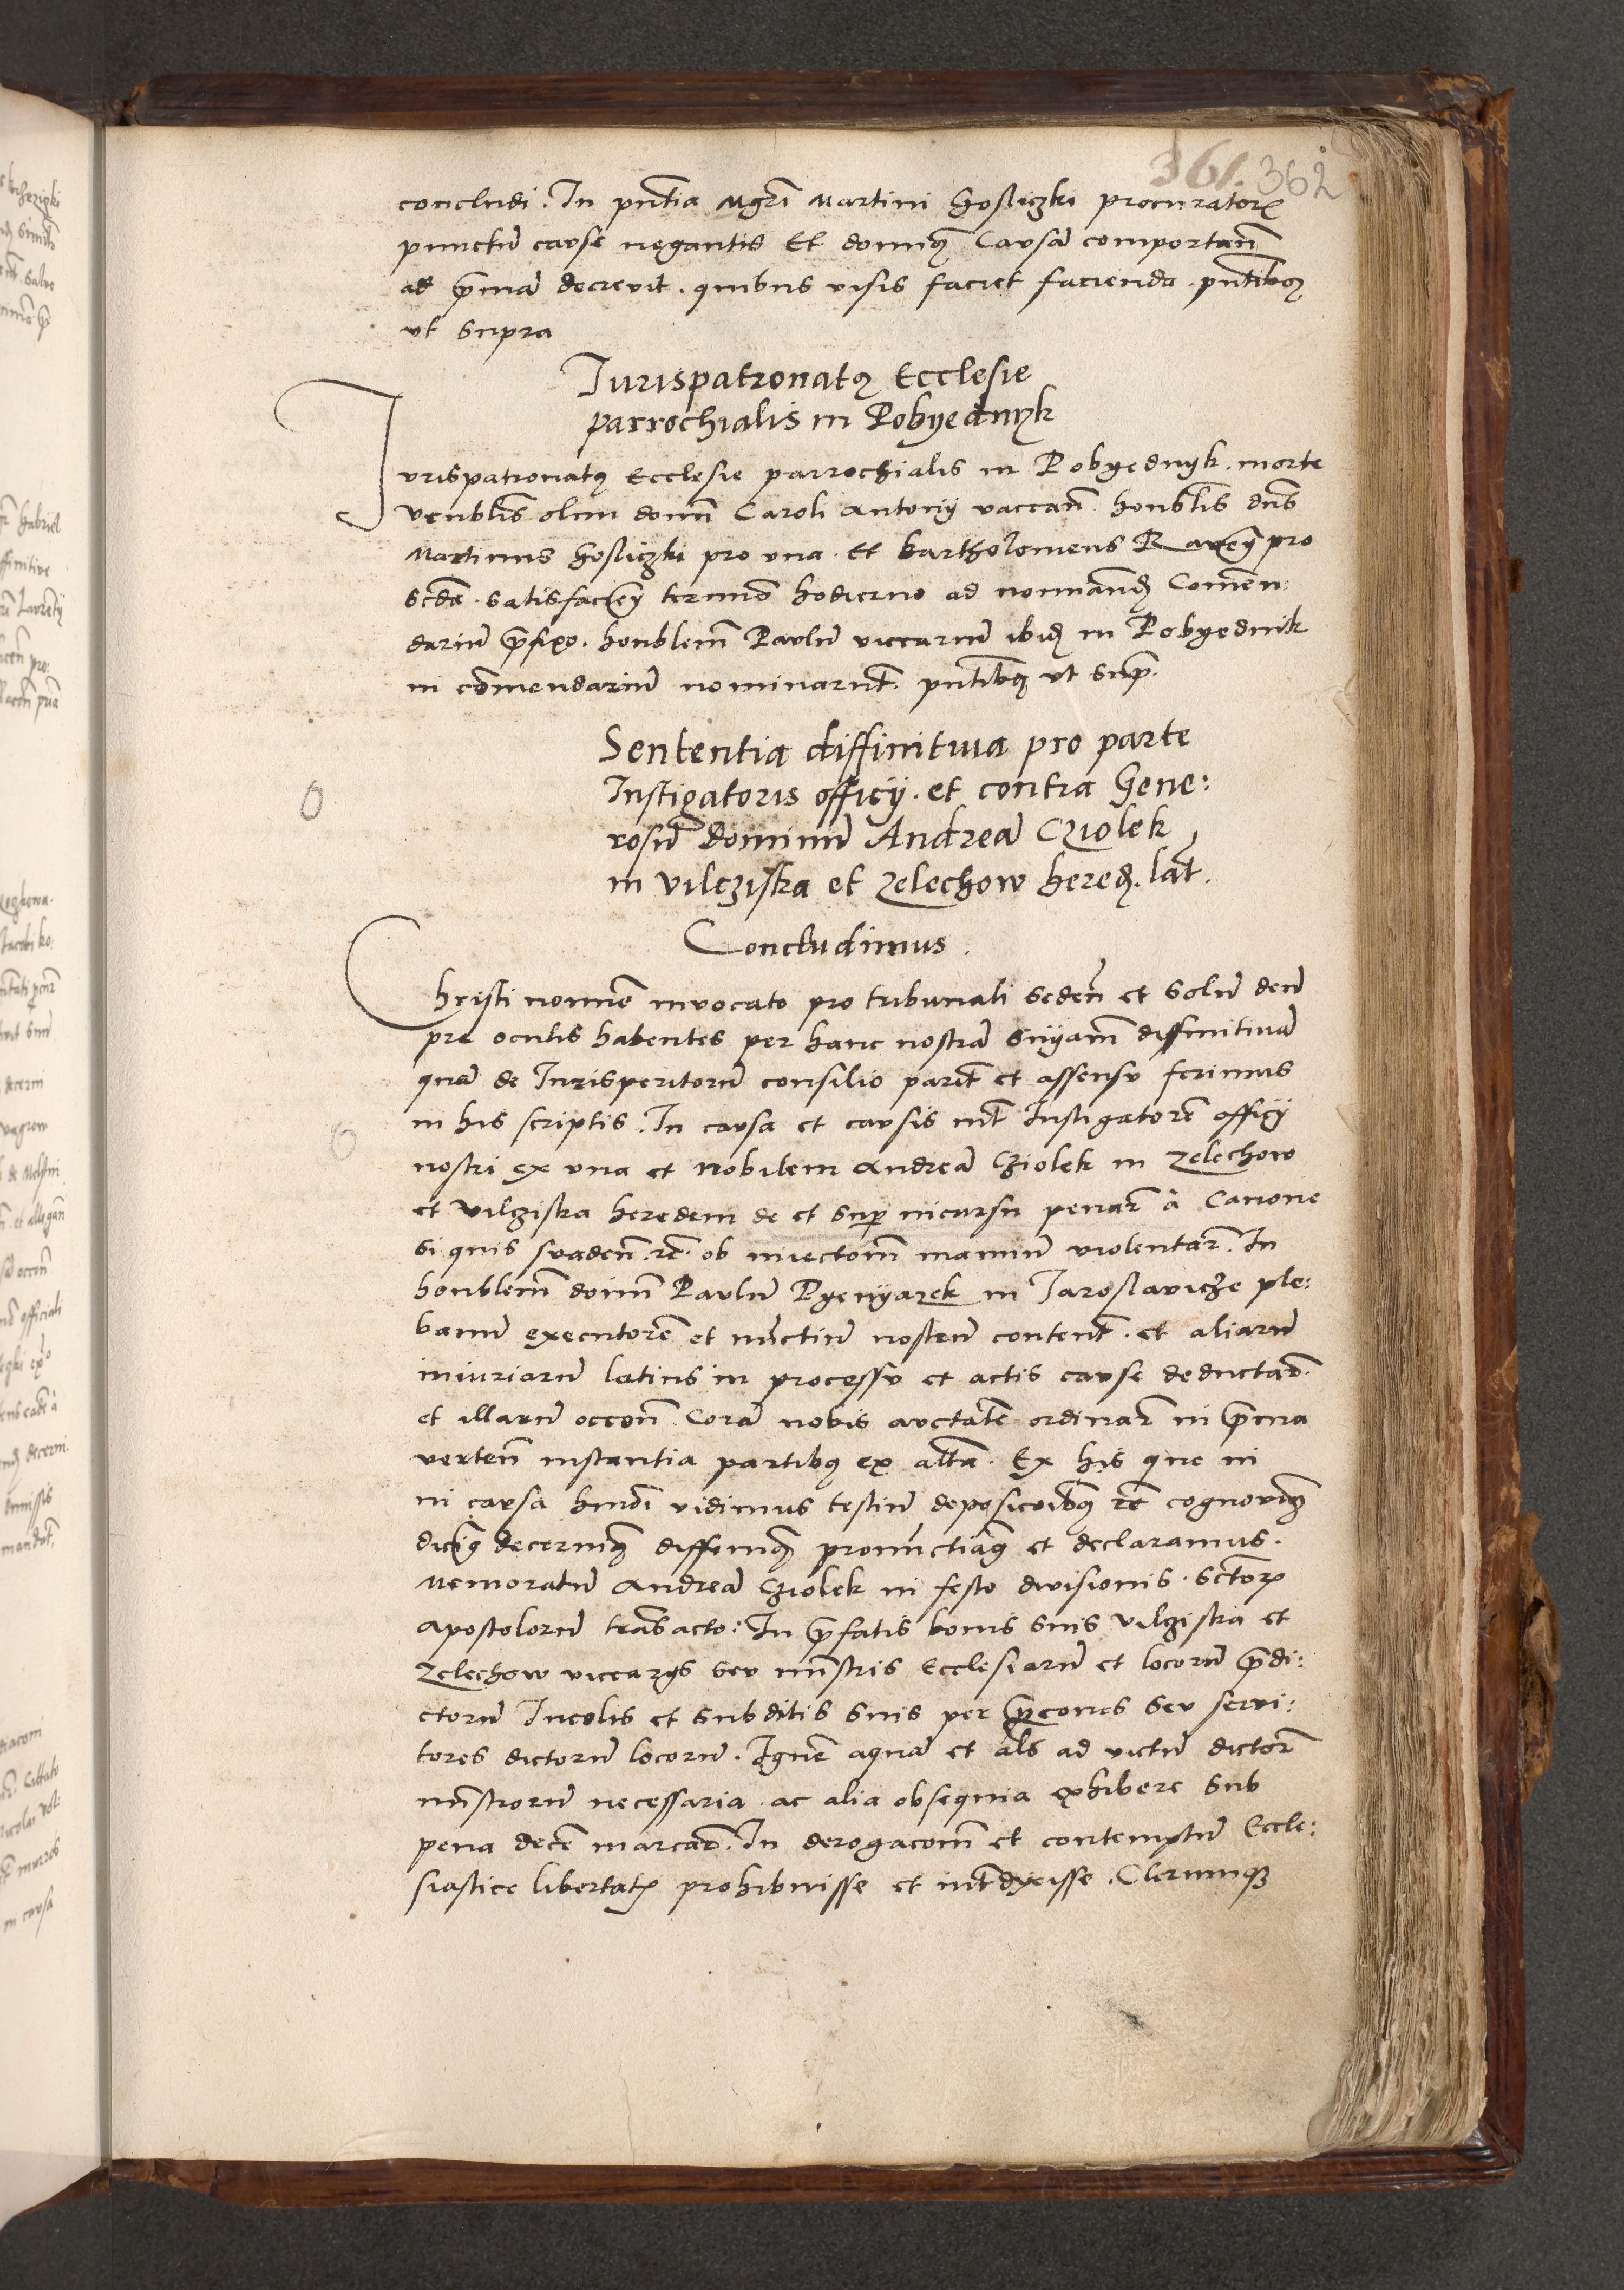 361. 362
concludi. In pntia Mgri Martini Hosliczki procurator
punctum cause negantis Et dominus Causam comportan
ad prima decrevit. quibus visis faciet facienda. pntibus
ut supra
Iurispatronatus Ecclesie
parrochialis in Pobyednyk
Iurispatronatus Ecclesie parrochialis in Pobyednyk. morte
venblis olim domini Caroli Antonij vaccan honblis dns
Martinus Hosliczki pro una. Et bartholomeus pro
scda. satisfacien termino hodierno ad nominand Comen:
darium prefixo. honblem Paulum viccarium ibid in Pobyednik
in comendarium nominarunt. pntibus ut supra.
Sententia diffinitiua pro parte
Instigatoris officij. et contra Gene:
rosum dominum Andream Cziolek
in Vilcziska et Zelechow hered. lat.
Concludimus.
Christi nomine invocato pro tribunali seden et solum deum
pre oculis habentes per hanc nostram snyam diffinitivam
quam de Iurisperitorum consilio parit et assensu ferimus
in his scriptis. In causa et causis int Instigatorem officij
nostri ex una et Nobilem Andream Cziolek in Zelechow
et Vilgistra heredem de et super incursu penar à Canone
si quis suaden. re. ob iniectom manuum violentar. In
honblem doim Paulum Pyenyazek in Iaroslavicze ple:
banum executorem et nunctium nostrum content. et aliarum
iniuriarum latius in processu et actis cause deductar.
et illarum occon. Coram nobis auctate ordinar in prima
verten instantia partibus ex altra. Ex his que in
in causa hmoi vidimus testium deposicoibus re cognovimus
dicimus decernimus diffinimus pronunctiamus et declaramus.
Memoratum Andream Cziolek in festo divisionis. sctorum
Apostolorum transacto: In prefatis bonis suis Vilgistra et
Zelechow viccarijs seu mnstris Ecclesiarum et locorum predi:
ctorum Incolis et subditis suis per precones seu servi:
tores dictorum locorum. Ignem aquam et als ad victum dictor
mnstrorum necessaria. ac alia obsequia exhibere sub
pena decem marcar. In derogacom et contemptum Eccle:
siastice libertatis prohibuisse et intdixisse. Clerumque